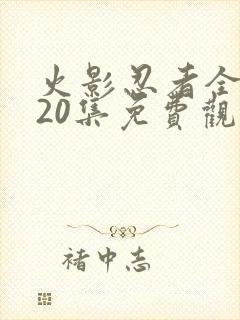 火影忍者全
20集免費觀
褚中志